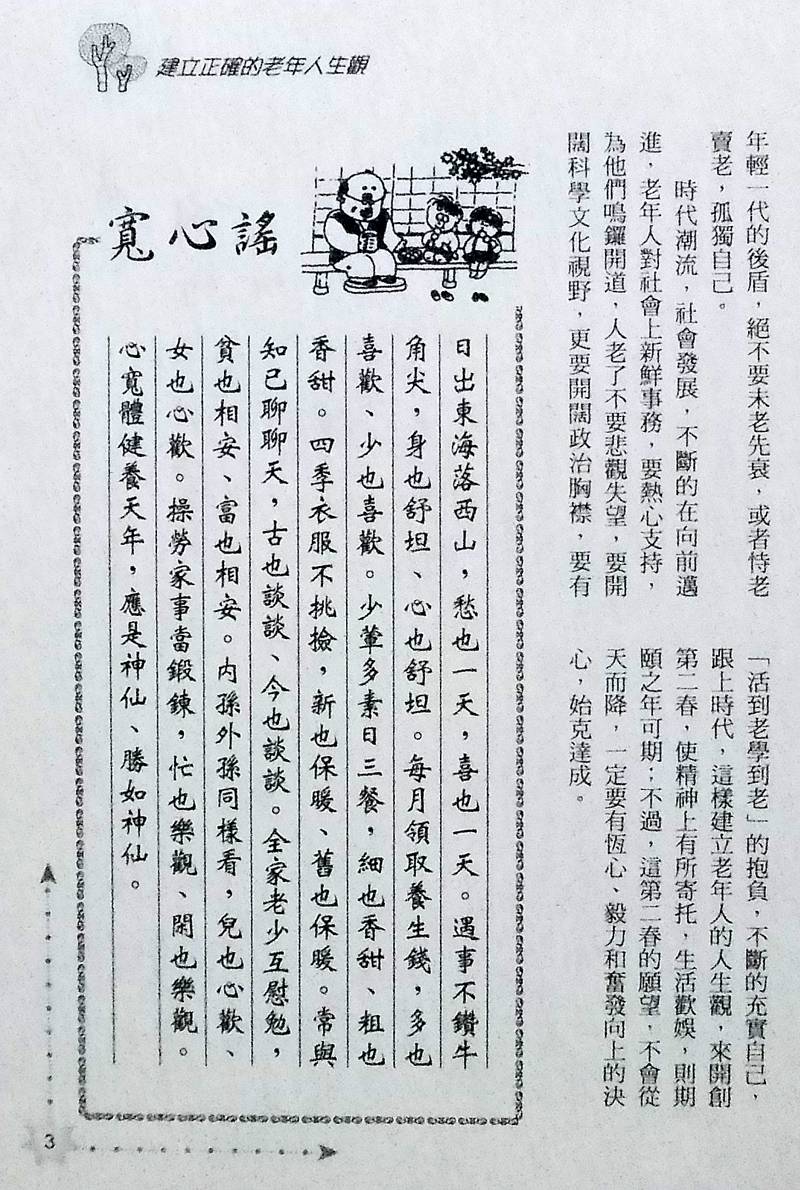 建立正確的老年人生觀
年輕一代的後盾，絕不要未老先衰，或者恃老
賣老，孤獨自己。
時代潮流，社會發展，不斷的在向前邁
進，老年人對社會上新鮮事務，要熱心支持，
為他們鳴鑼開道，人老了不要悲觀失望，要開
闊科學文化視野，更要開闊政治胸襟，要有
「活到老學到老」的抱負，不斷的充實自己，
跟上時代，這樣建立老年人的人生觀，來開創
第二春，使精神上有所寄托，生活歡娛，則期
頤之年可期；不過，這第二春的願望，不會從
天而降，一定要有恆心、毅力和奮發向上的決
心，始克達成。
寬心謠
日出東海落西山，愁也一天，喜也一天。遇事不鑽牛
角尖，身也舒坦、心也舒坦。每月領取養生錢，多也
喜歡、少也喜歡。少葷多素日三餐，細也香甜、粗也
香甜。四季衣服不挑撿，新也保暖、舊也保暖。常與
知己聊聊天，古也談談、今也談談。全家老少互慰勉，
貧也相安、富也相安。內孫外孫同樣看，兒也心歡、
女也心歡。操勞家事當鍛鍊，忙也樂觀、閑也樂觀。
心寬體健養天年，應是神仙、勝如神仙。
3